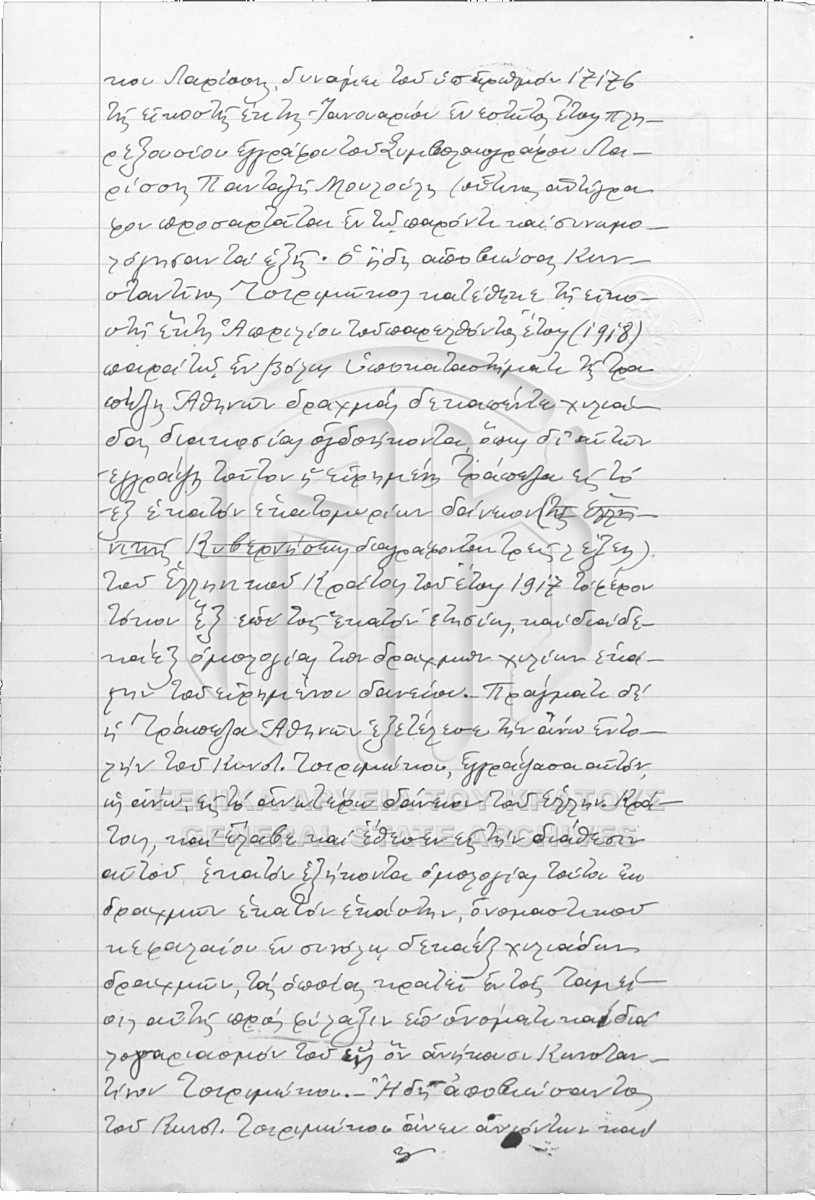 κου Λαρίσσης, δυνάμει του υπ' αριθμόν 17176
της εικοστής έκτης Ιανουαρίου ενεστώτος έτους πλη-
ρεξουσίου εγγράφου του Συμβολαιογράφου Λα-
ρίσσης Πανταζή (ούτινος αντίγρα
φον προσαρτάται εν τω παρόντι και συνωμο-
λόγησαν τα εξής· ο ήδη αποβιώσας Κων-
σταντίνος Τσιριμώκος κατέθηκε τη εικο-
στή έκτη Απριλίου του παρελθόντος έτους (1918)
παρά τω εν Βόλω Υποκαταστήματι της Τρα
πέζης Αθηνών δραχμάς δεκαπέντε χιλιά-
δας διακοσίας ογδοήκοντα, όπως δι' αυτών
εγγράψη τούτον η ειρημένη Τράπεζα εις το
εξ εκατόν εκατομμυρίων δάνειον (της Ελλη-
νικής Κυβερνήσεως διαγράφονται τρεις λέξεις).
του Ελληνικού Κράτους του έτους 1917 το φέρον
τόκον έξ επί τοις εκατόν ετησίως, και διά δε-
καέξ ομολογίας των δραχμών χιλίων εκά-
στην του ειρημένου δανείου.- Πράγματι δε
η Τράπεζα Αθηνών εξετέλεσε την άνω εντο-
λήν του Κωνστ. Τσιριμώκου, εγγράψασα αυτόν,
ως άνω, εις το ανωτέρω δάνειον του Ελλην. Κρά-
τους, και έλαβε και έθεσεν εις την διάθεσιν
αυτού εκατόν εξήκοντα ομολογίας τούτου εκ
δραχμών εκατόν εκάστην, ονομαστικού
κεφαλαίου εν συνόλω δεκαέξ χιλιάδων
δραχμών, τας οποίας κρατεί εν τοις Ταμεί-
οις αυτής προς φύλαξιν επ' ονόματι και διά
λογαριασμόν του εις ον ανήκουσι Κωνσταν-
τίνου Τσιριμώκου.- Ήδη αποβιώσαντος
του Κωνστ. Τσιριμώκου άνευ ανιόντων και
ΓΕΝΙΚΑ ΑΡΧΕΙΑ ΤΟΥ ΚΡΑΤΟΥΣ
GENERAL STATE ARCHIVES